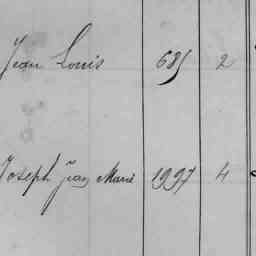 Jean Louis 685 2
Joseph Jean Marie 1997 4